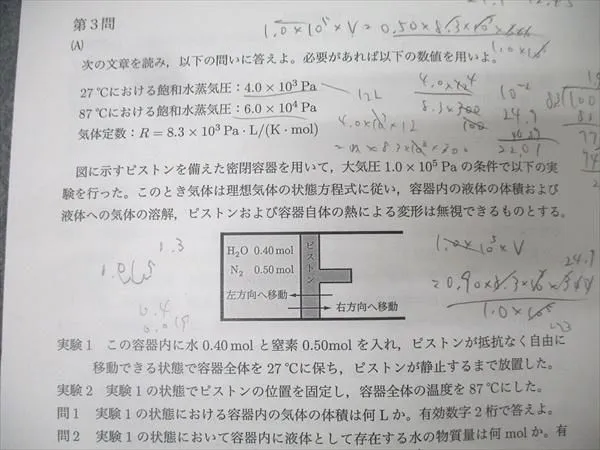 第3問
1.0×10⁵×V = 0.50×8.3×10³×300
(A)
次の文章を読み，以下の問いに答えよ。必要があれば以下の数値を用いよ。
27℃における飽和水蒸気圧：4.0×10³ Pa
87℃における飽和水蒸気圧：6.0×10⁴ Pa
気体定数：R＝8.3×10³ Pa·L/(K·mol)
12L
図に示すピストンを備えた密閉容器を用いて，大気圧 1.0×10⁵ Pa の条件で以下の実
験を行った。このとき気体は理想気体の状態方程式に従い，容器内の液体の体積および
液体への気体の溶解，ピストンおよび容器自体の熱による変形は無視できるものとする。
H₂O 0.40 mol
N₂ 0.50 mol
ピストン
左方向へ移動
右方向へ移動
1.3
0.4
1.0×10⁵×V
24.9
実験1 この容器内に水 0.40 mol と窒素 0.50mol を入れ，ピストンが抵抗なく自由に
移動できる状態で容器全体を 27℃に保ち，ピストンが静止するまで放置した。
実験2 実験1の状態でピストンの位置を固定し，容器全体の温度を 87℃にした。
問1 実験1の状態における容器内の気体の体積は何 L か。有効数字2桁で答えよ。
問2 実験1の状態において容器内に液体として存在する水の物質量は何 mol か。有